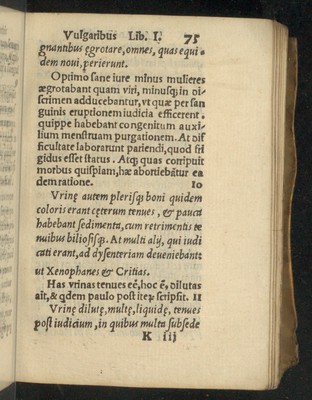 Vulgaribus Lib. I. 75
gnantibus ęgrotare, omnes, quas equi-
dem noui, perierunt.
Optimo sane iure minus mulieres
ægrotabant quam viri, minusq; in di
scrimen adducebantur, vt quæ per san
guinis eruptionem iudicia efficerent.
quippe habebant congenitum auxi-
lium menstruam purgationem. At dif
ficultate laborarunt pariendi, quod fri
gidus esset status. Atq; quas corripuit
morbus quispiam, hæ abortiebãtur ea
dem ratione. 10
Vrinę autem plerisq; boni quidem
coloris erant cęterum tenues, & pauca
habebant sedimenta, cum retrimentis te
nuibus biliosisq;. At multi alij, qui iudi
cati erant, ad dysenteriam deueniebant:
ut Xenophanes & Critias.
Has vrinas tenues eẽ, hoc ẽ, dilutas
ait, & qdem paulo post iteꝝ scripsit. 11
Vrinę dilutę, multę, liquidę, tenues
post iudicium, in quibus multa subsede
K iij